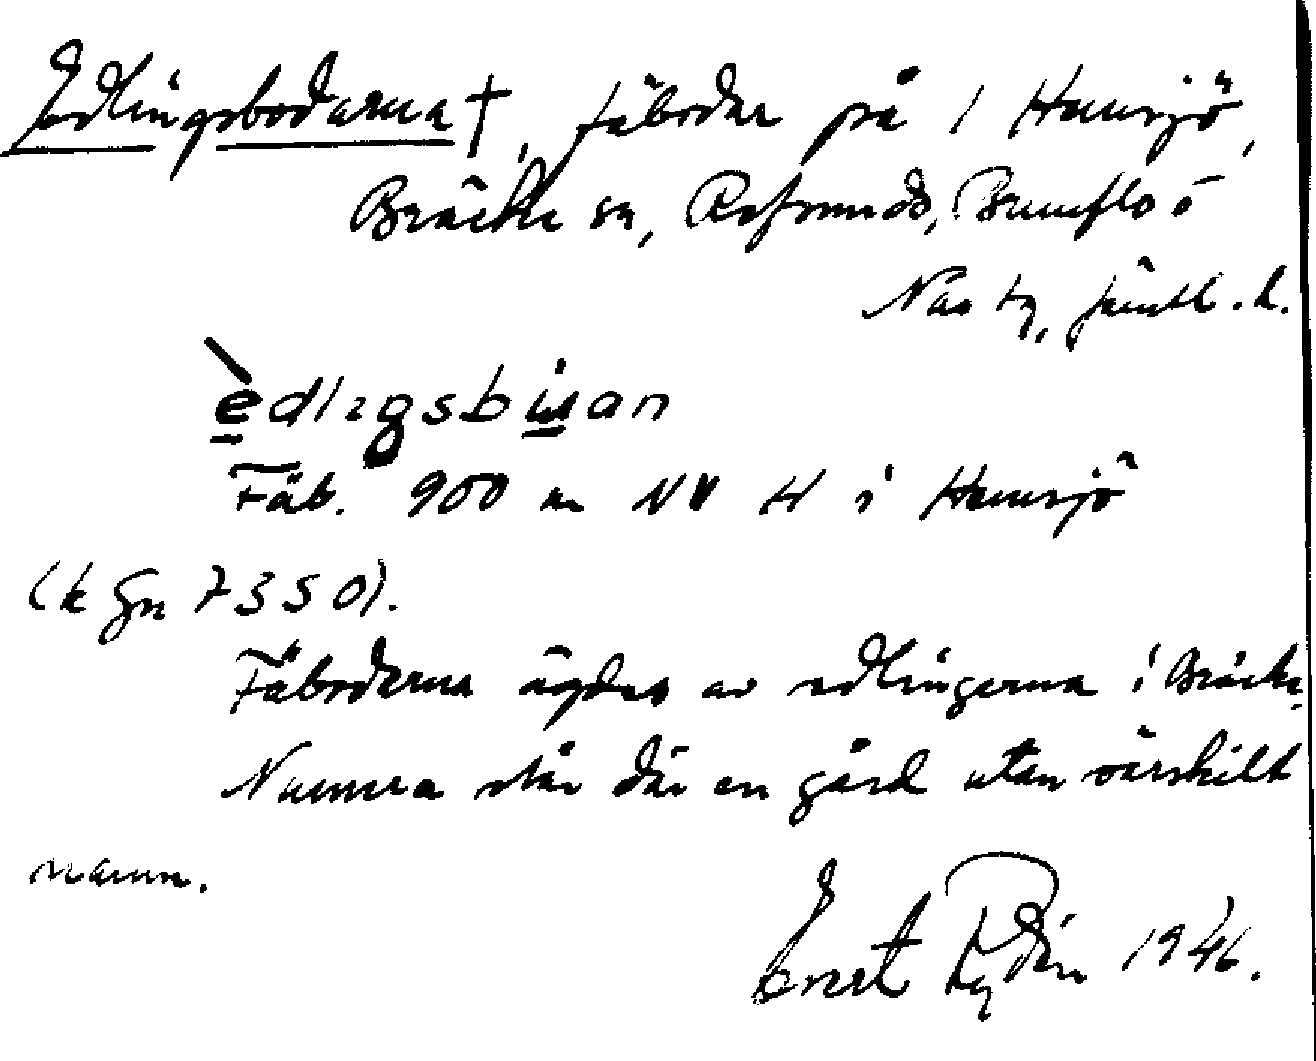 Edlingsbodarna †, fäbodar på 1 Hemsjö,
Bräcke sn, Refsunds, Brunflo o
Näs tg, Jämtl. l.
èdlıŋgsbuan
Fäb. 900 m NV H i Hemsjö
(k Gn 7350).
Fäboderna ägdes av edlingerna i Bräcke.
Numera står där en gård utan särskilt
namn.
Ernst Rydén 1946.